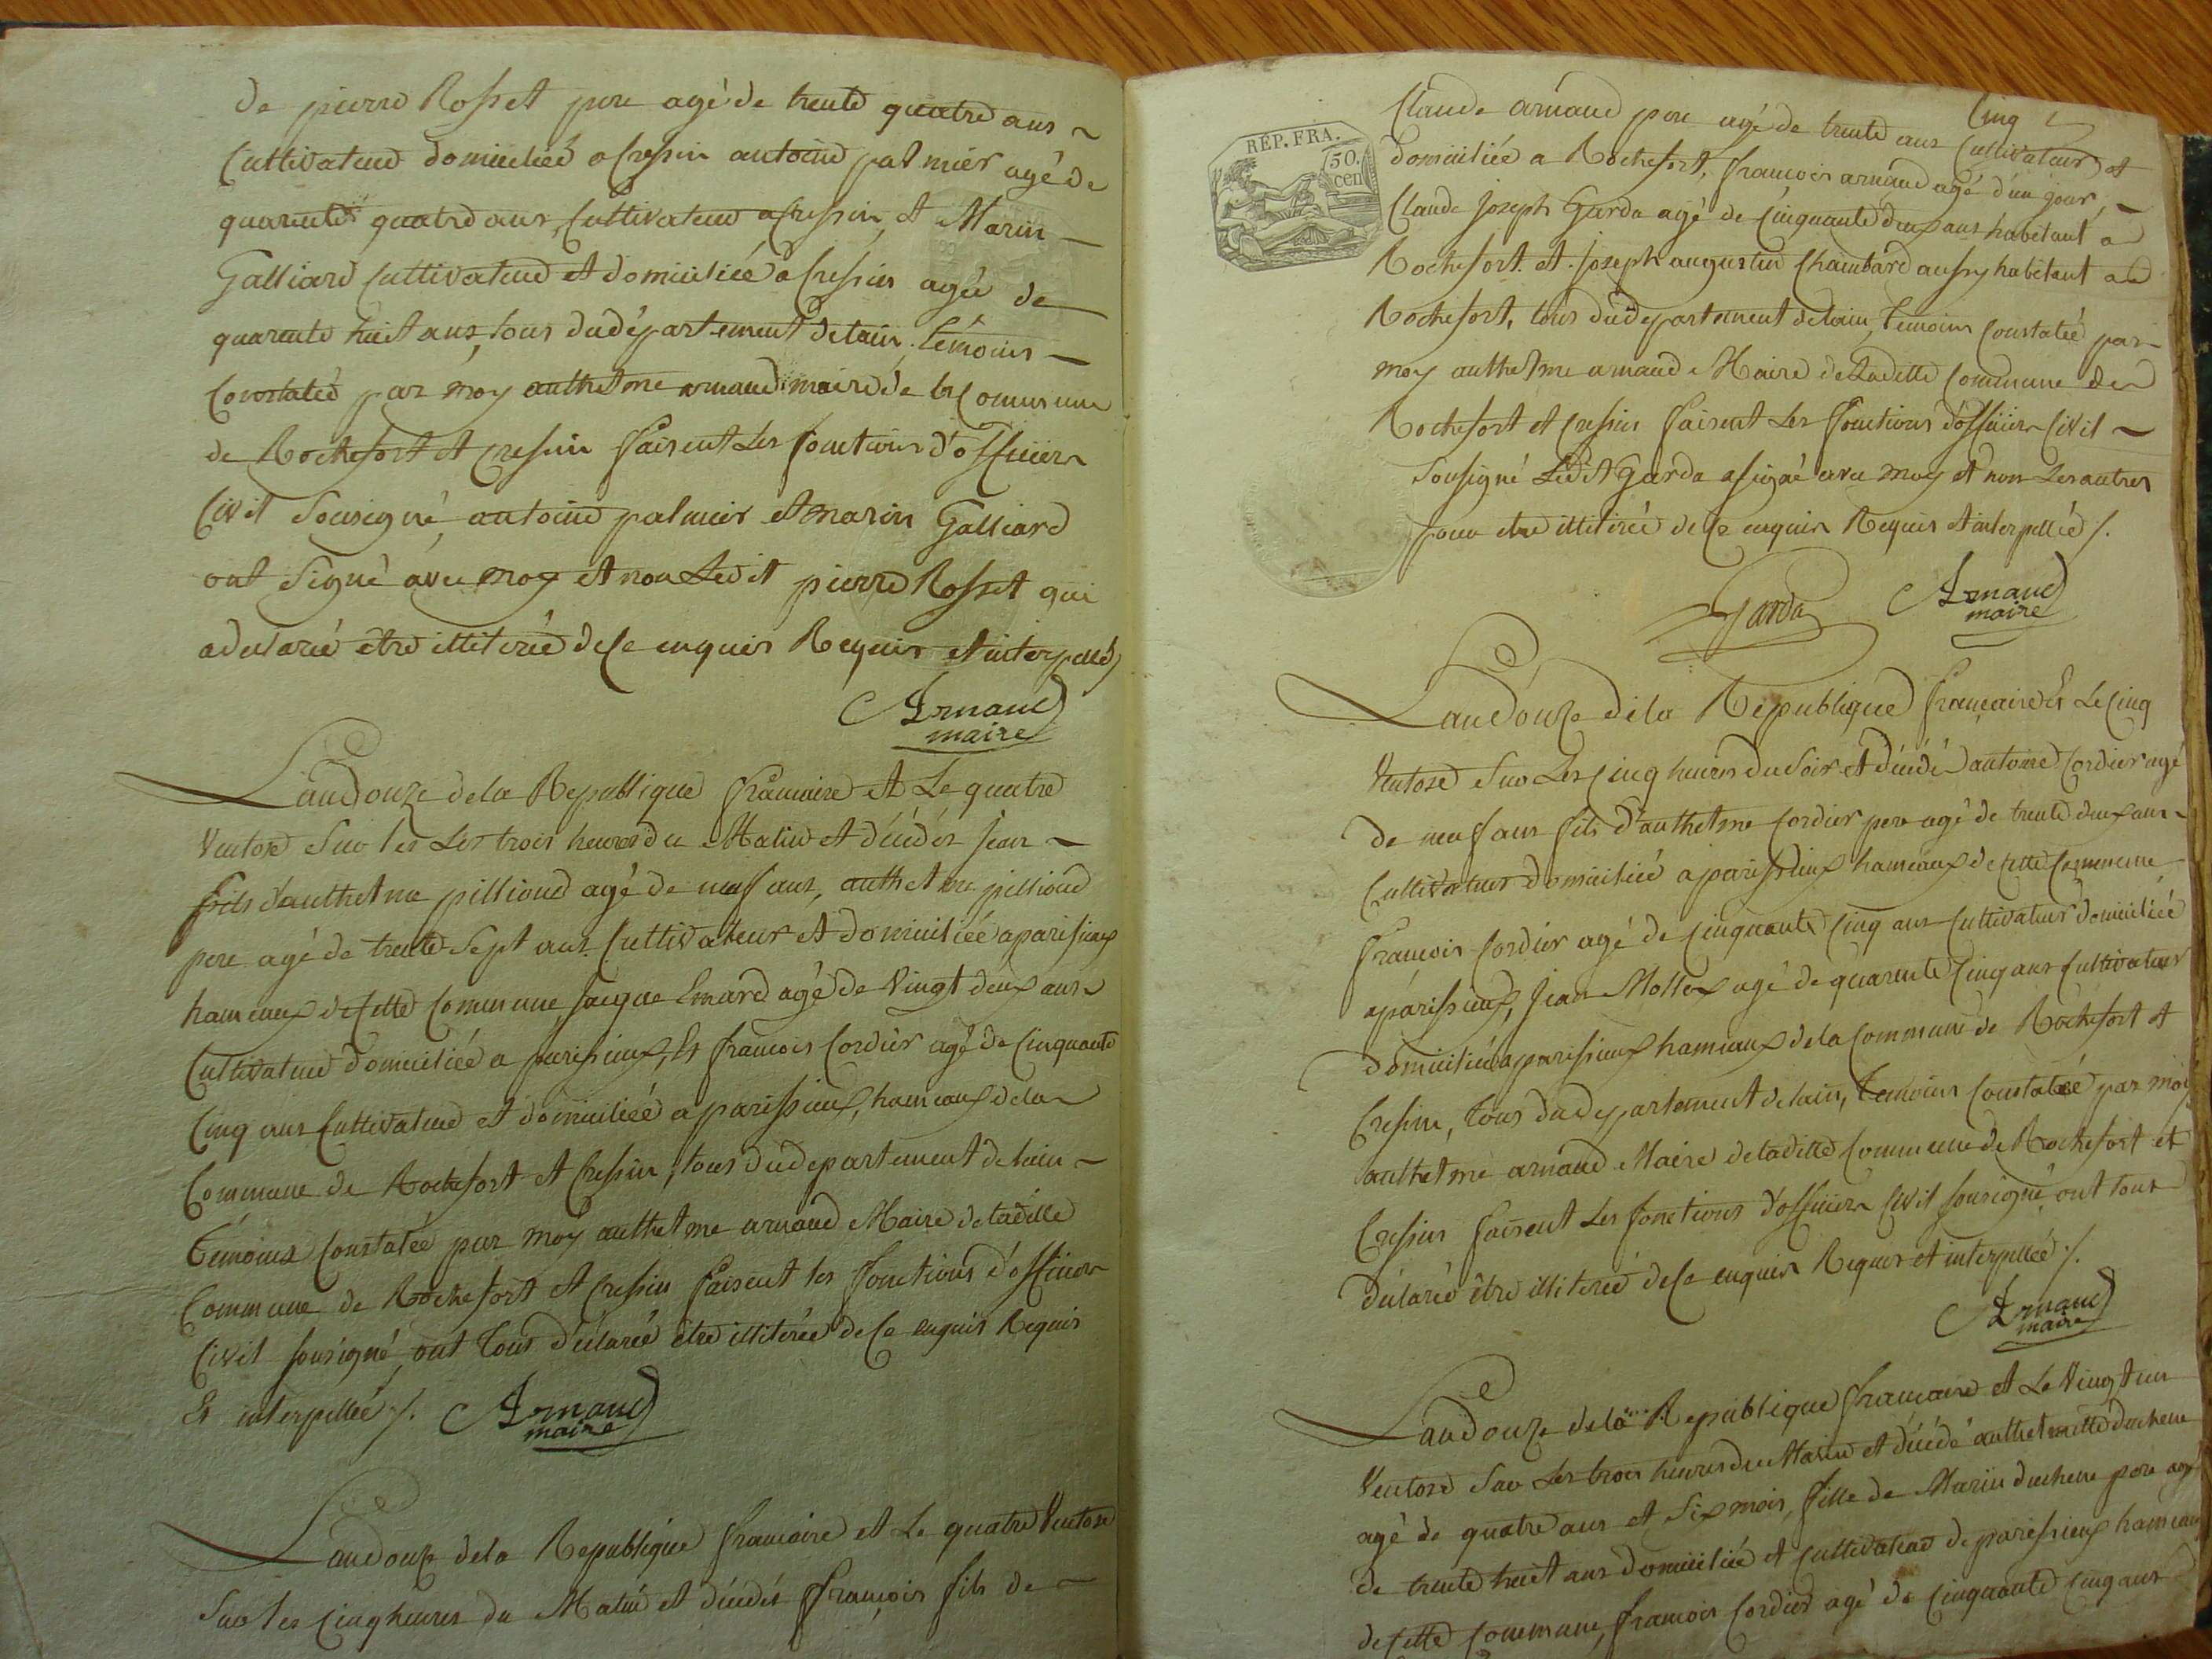 de pierre Rosset pere agé de trente quatre ans
Cultivateur domicilié a Cressin antoine palmier agé de
quarente quatre ans, Cultivateur a Cressin, et Marin
Galliard Cultivateur et domiciliée a Cressin agée de
quarente huit ans, tous du département de lain. témoins
Constatée par moy anthelme arnaud maire de la Commune
de Rochefort et Cressin faisent les fonctions d'officier
Civil Sousigné, antoine palmier et marin Galliard
ont Signé avec moy et non Ledit pierre Rosset qui
a declaré être illitérée de Ce enquis Requis et interpellé
Arnaud
maire
Landouze de la Republique francaise et Le quatre
Ventose Sur les Les trois heures du Matin et décédés Jean
fils d'anthelme pillioud agé de neuf ans, anthelme pillioud
pere agé de trente Sept ans Cultivateur et domiciliée a parissieux
hameaux de Cette Commune, Jacque Emard agé de Vingt deux ans
Cultivateur domiciliée a parissieux, Et francois Cordier agé de Cinquante
Cinq ans Cultivateur et domiciliéé a parissieux, hameaux de la
Commune de Rochefort et Cressin, tous du departement de lain
témoins Constatée par moy anthelme arnaud Maire de ladille
Commune de Rochefort et Cressin faisent les fonctions d'officier
Civil sousigné, ont tous déclarée être illitérée de Ce enquis Requis
Et interpellée /.
Arnaud
maire
Landouze de la Republique francaise et Le quatre Ventose
Sur les Cinq heures du Matin et décédés francois fils de
Cinq
REP. FRA.
50.
cen
Claude arnaud pere agé de trente ans Cultivateur et
domiciliée a Rochefort, francois arnaud agé d'un jour,
Claude Joseph Garda agé de Cinquante deux ans habitant a
Rochefort. et. Joseph augustin Chambard aussy habitant a
Rochefort, tous du departement de lain, temoins Constatée par
moy anthelme arnaud Maire de Ladille Commune de
Rochefort et Cressin faisent Les fonctions d'officier Civil
Sousigné Ledit Garda a signé avec moy et non Les autres
pour etre illitérée de Ce enquis Requis et interpellée /.
Garda
Arnaud
maire
Landouze de la Republique francaise Et Le Cinq
Ventose Sur Les Cinq heures du Soir et décédé antoine Cordier agé
de neuf ans fils d'anthelme Cordier pere agé de trente deux ans
Cultivateur domiciliéé a parissieux hameaux de Cette Commune,
francois Cordier agé de Cinquante Cinq ans Cultivateur domiciliéé
a parissieux, Jean Mollex agé de quarente Cinq ans Cultivateur
domiciliée a parissieux hameaux de la Commune de Rochefort et
Cressin, tous du departement de lain, temoins Constatée par moi
anthelme arnaud Maire de ladille Commune de Rochefort et
Cressin faisent Les fonctions d'officier Civil sousigné, ont tous
déclarée être illiterée de Ce enquis Requis et interpellée /.
Arnaud
maire
Landouze de la Republique francaise et Le Vingt un
Ventose Sur Les trois heures du Matin et décédé anthelmette duchene
agé de quatre ans et Six mois, fille de Marin duchene pere agé
de trente huit ans domiciliée et Cultivateur de parissieux hameaux
de Cette Commune, francois Cordier agé de Cinquante Cinq ans